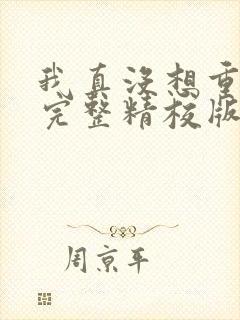 我真没想重
完整精校版
周京平